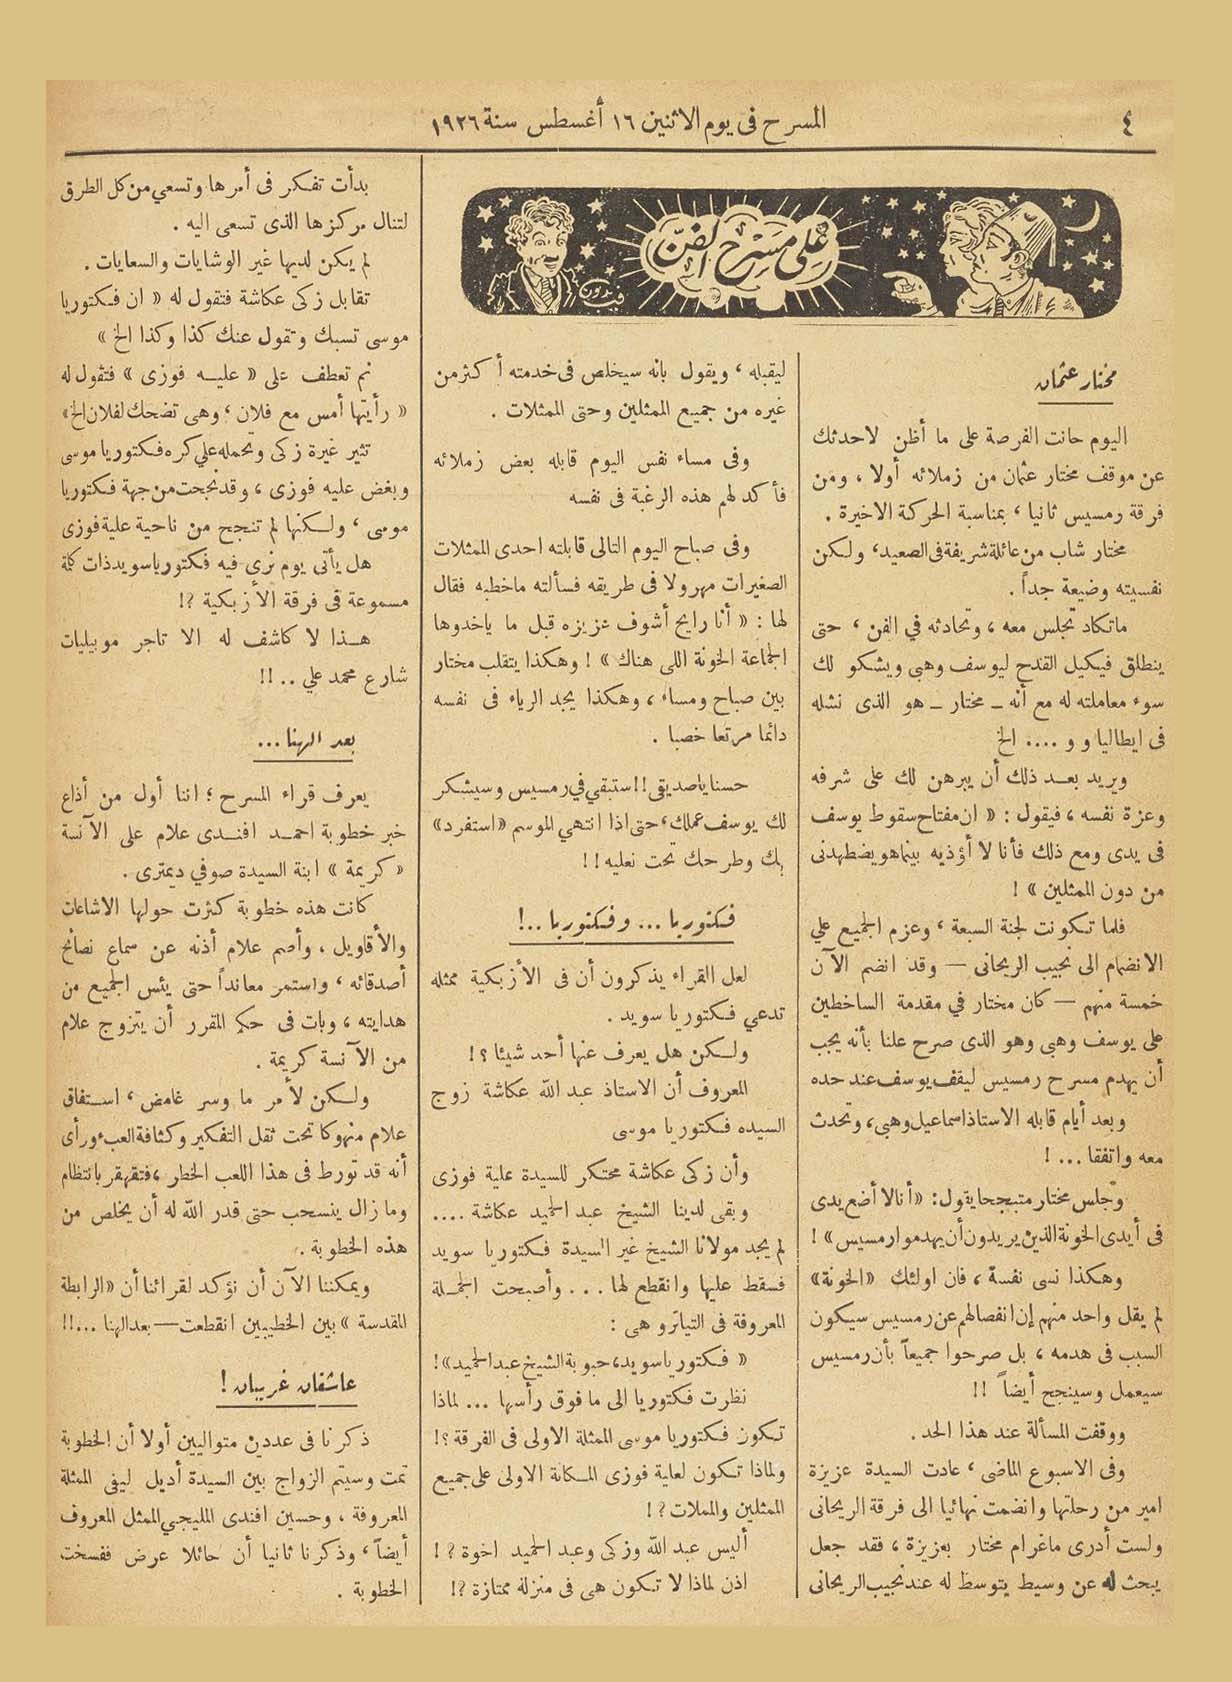 ٤
المسرح فى يوم الاثنين ١٦ أغسطس سنة ١٩٢٦
على مسرح الفن
فيدون
مختار عثمان
اليوم حانت الفرصة على ما أظن لاحدثك
عن موقف مختار عثمان من زملائه أولا ، ومن
فرقة رمسيس ثانيا ، بمناسبة الحركة الاخيرة .
مختار شاب من عائلة شريفة فى الصعيد، ولكن
نفسيته وضيعة جداً .
ماتكاد تجلس معه ، وتحادثه في الفن ، حتى
ينطلق فيكيل القدح ليوسف وهبى ويشكو لك
سوء معاملته له مع أنه ـ مختار ـ هو الذى نشله
فى ايطاليا و و .... الخ
ويريد بعد ذلك أن يبرهن لك على شرفه
وعزة نفسه ، فيقول : « ان مفتاح سقوط يوسف
فى يدى ومع ذلك فأنا لا أؤذيه بينما هو يضطهدنى
من دون الممثلين » !
فلما تكونت لجنة السبعة ، وعزم الجميع علي
الانضمام الى نجيب الريحانى — وقد انضم الآن
خمسة منهم — كان مختار في مقدمة الساخطين
على يوسف وهبى وهو الذى صرح علنا بأنه يجب
أن يهدم مسرح رمسيس ليقف يوسف عند حده
وبعد أيام قابله الاستاذ اسماعيل وهبى، وتحدث
معه واتفقا ... !
وجلس مختار متبجحا يقول: « أنا لا أضع يدى
فى أيدى الخونة الذين يريدون أن يهدموا رمسيس » !
وهكذا نسى نفسه ، فان اولئك «الخونة»
لم يقل واحد منهم إن انفصالهم عن رمسيس سيكون
السبب فى هدمه ، بل صرحوا جميعاً بأن رمسيس
سيعمل وسينجح أيضاً !!
ووقفت المسألة عند هذا الحد .
وفى الاسبوع الماضى ، عادت السيدة عزيزة
امير من رحلتها وانضمت نهائيا الى فرقة الريحانى
ولست أدرى ماغرام مختار بعزيزة ، فقد جعل
يبحث له عن وسيط يتوسط له عند نجيب الريحانى
ليقبله ، ويقول بانه سيخلص فى خدمته أكثر من
غيره من جميع الممثلين وحتى الممثلات .
وفى مساء نفس اليوم قابله بعض زملائه
فأكد لهم هذه الرغبة فى نفسه
وفى صباح اليوم التالى قابلته احدى الممثلات
الصغيرات مهرولا فى طريقه فسألته ماخطبه فقال
لها : « أنا رايح أشوف عزيزه قبل ما ياخدوها
الجماعة الخونة اللى هناك » ! وهكذا يتقلب مختار
بين صباح ومساء ، وهكذا يجد الرياء فى نفسه
دائما مرتعا خصبا .
حسنا ياصديقى !! ستبقي في رمسيس وسيشكر
لك يوسف عملك ، حتى اذا انتهي الموسم «استفرد»
بك وطرحك تحت نعليه !!
فكتوريا ... وفكتوريا ..!
لعل القراء يذكرون أن فى الأزبكية ممثله
تدعي فكتوريا سويد .
ولكن هل يعرف عنها أحد شيئا ؟ !
المعروف أن الاستاذ عبد الله عكاشة زوج
السيده فكتوريا موسى
وأن زكى عكاشة محتكر للسيدة علية فوزى
وبقى لدينا الشيخ عبد الحميد عكاشة ....
لم يجد مولانا الشيخ غير السيدة فكتوريا سويد
فسقط عليها وانقطع لها ... وأصبحت الجملة
المعروفة فى التياترو هى :
« فكتوريا سويد، حبوبة الشيخ عبد الحميد » !
نظرت فكتوريا الى ما فوق رأسها ... لماذا
تكون فكتوريا موسى الممثلة الاولى فى الفرقة ؟!
ولماذا تكون لعلية فوزى المكانة الاولى على جميع
الممثلين والمملات ؟ !
أليس عبد الله وزكى وعبد الحميد اخوة ؟ !
اذن لماذا لا تكون هى فى منزلة ممتازة ؟!
بدأت تفكر فى أمرها وتسعي من كل الطرق
لتنال مركزها الذى تسعى اليه .
لم يكن لديها غير الوشايات والسعايات .
تقابل زكى عكاشة فتقول له « ان فكتوريا
موسى تسبك وتقول عنك كذا وكذا الخ »
ثم تعطف على « عليه فوزى » فتقول له
« رأيتها أمس مع فلان ، وهى تضحك لفلان الخ »
تثير غيرة زكى وتحمله علي كره فكتوريا موسى
وبغض عليه فوزى ، وقد نجحت من جهة فكتوريا
موسى ، ولكنها لم تنجح من ناحية علية فوزى
هل يأتى يوم نرى فيه فكتوريا سويد ذات كلمة
مسموعة فى فرقة الأزبكية ؟!
هذا لا كاشف له الا تاجر موبيليات
شارع محمد علي .. !!
بعد الهنا ...
يعرف قراء المسرح ؛ اننا أول من أذاع
خبر خطوبة احمد افندى علام على الآنسة
« كريمة » ابنة السيدة صوفي ديمترى .
كانت هذه خطوبة كثرت حولها الاشاعات
والأقاويل ، وأصم علام أذنه عن سماع نصائح
أصدقائه ، واستمر معانداً حتى يئس الجميع من
هدايته ، وبات فى حكم المقرر أن يتزوج علام
من الآنسة كريمة .
ولكن لأمر ما وسر غامض ، استفاق
علام منهوكا تحت ثقل التفكير وكثافة العبء ورأى
أنه قد تورط فى هذا اللعب الخطر ، فتقهقر بانتظام
ومازال ينسحب حتى قدر الله له أن يخلص من
هذه الخطوبة .
ويمكننا الآن أن نؤكد لقرائنا أن «الرابطة
المقدسة » بين الخطيبين انقطعت — بعد الهنا ...!!
عاشقان غريبان !
ذكرنا فى عددين متواليين أولا أن الخطوبة
تمت وسيتم الزواج بين السيدة أديل ليفى الممثلة
المعروفة ، وحسين افندى المليجي الممثل المعروف
أيضاً ، وذكرنا ثانيا أن حائلا عرض ففسخت
الخطوبة .